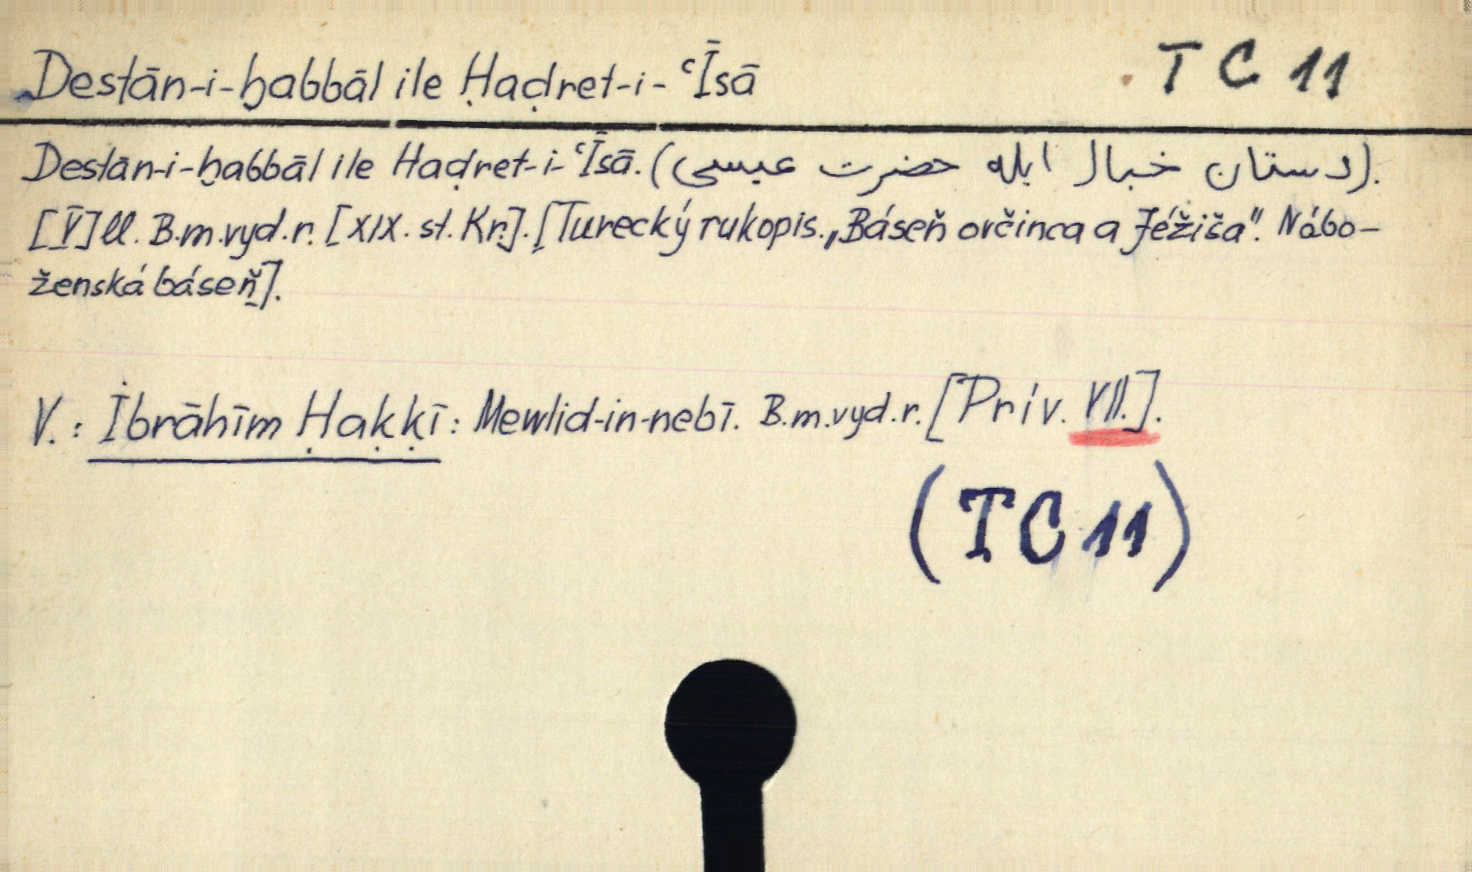 Destān-i-ḫabbāl ile Ḥaḍret-i-ʿĪsā
TC 11
Destān-i-ḫabbāl ile Haḍret-i-ʿĪsā. (دستان خبال ايله حضرت عيسى).
[V] ll. B.m.vyd.r. [XIX. st. Kr.]. [Turecký rukopis. „Báseň ovčinca a Jéžiša". Nábo-
ženská báseň].
V.: İbrāhīm Ḥaḳḳī: Mewlid-in-nebī. B.m.vyd.r. [Prív. VII.].
(TC 11)